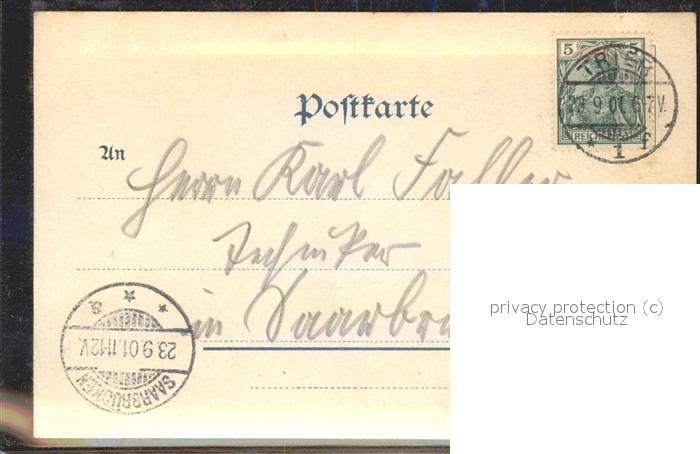 5 5
REICHSPOST
TRIER
23.9.01.6-7V.
* 1 f
Postkarte
An
Herrn Karl Faller
Techniker
in Saarbrü
privacy protection (c)
Datenschutz
* * a
23.9.01.11-12V.
SAARBRÜCKEN